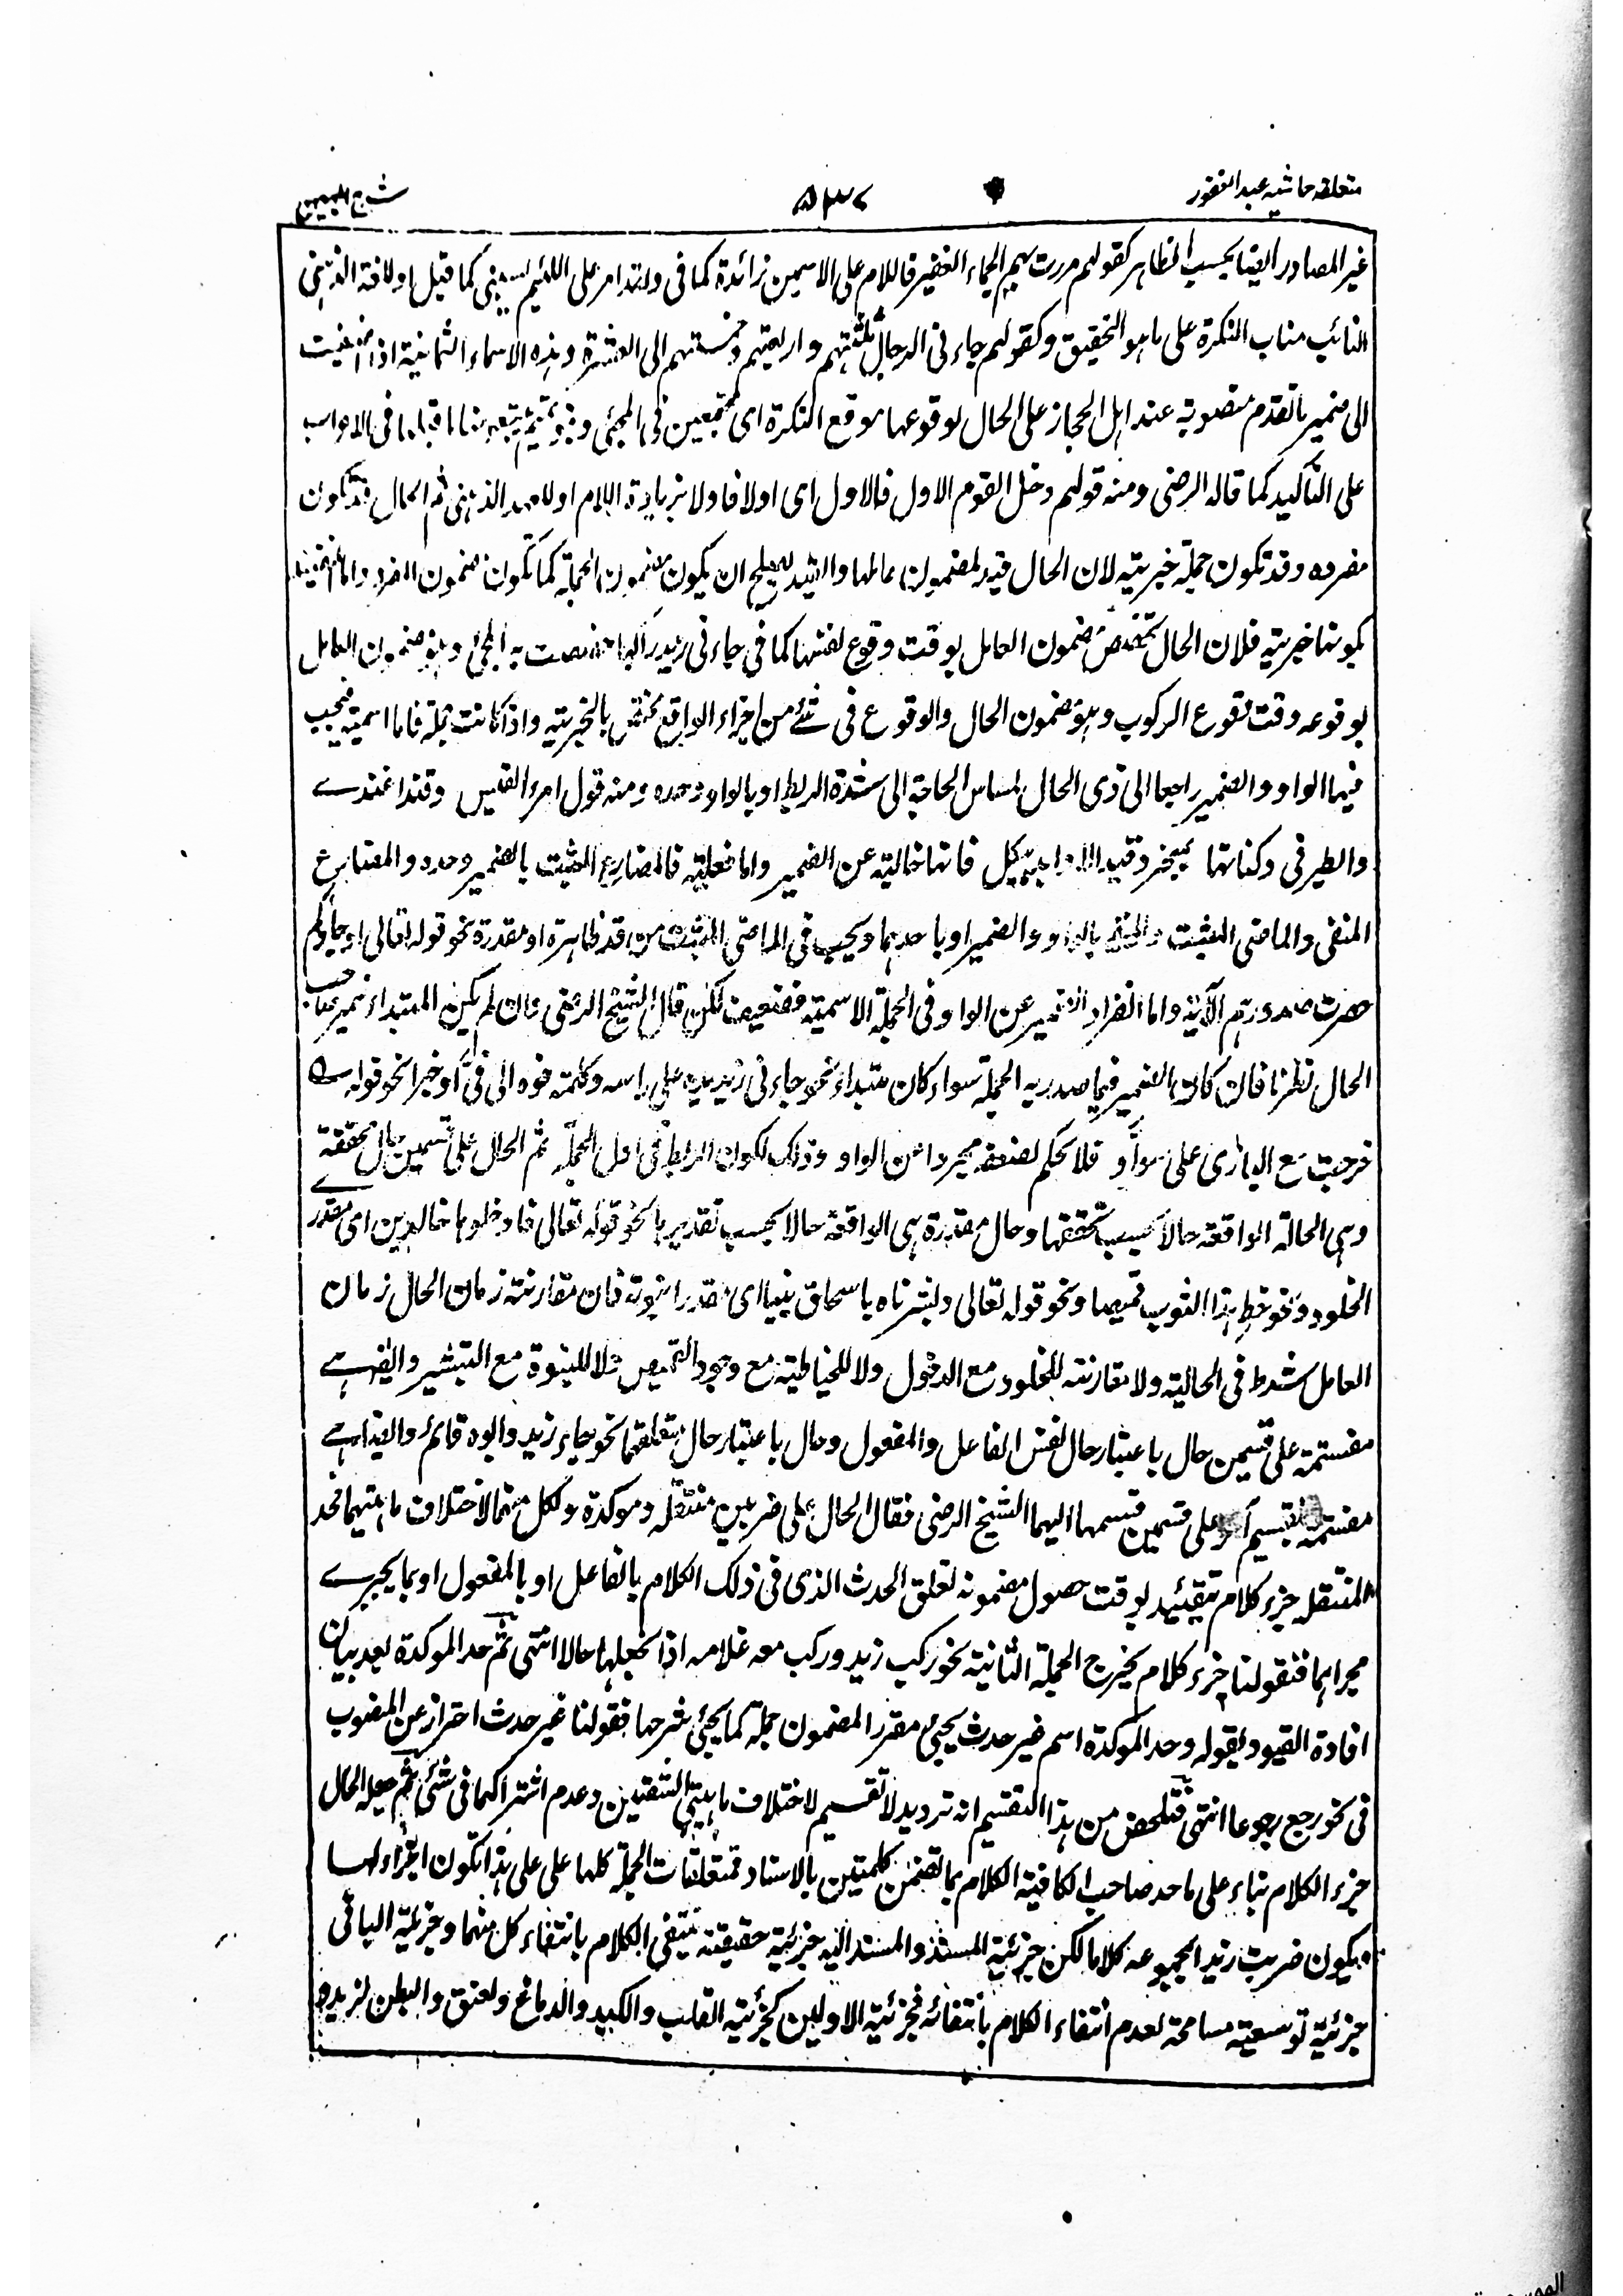 متعلقه حاشیه عبد الغفور
غیر المصادر ایضا بحسب الظاهر کقولهم مررت بهم الجماء الغفیر فاللام علی الاسمین زائدة کما فی ولقد امر علی اللئیم یسبنی کما قیل او لافة الذهنی
النائب مناب النکرة علی ما هو التحقیق وکقولهم جاءنی الرجال ثلثتهم واربعتهم وخمستهم الی العشرة وهذه الاسماء الثمانیة اذا اضیفت
الی ضمیر ما تقدم منصوبة عند اهل الحجاز علی الحال لوقوعها موقع النکرة ای مجتمعین فی المجئی وبنو تمیم یتبعونها ما قبلها فی الاعراب
علی التأکید کما قاله الرضی ومنه قولهم دخل القوم الاول فالاول ای اولا فاولا بزیادة اللام او لام الذهنی ثم الحال قد تکون
مفرده وقد تکون جملة خبریة لان الحال قید لمضمون عاملها والقید یصلح ان یکون مضمون الجملة کما تکون مضمون المفرد واما
بکونها خبریة فلان الحال تخصص مضمون العامل بوقت وقوع نفسها کما فی جاءنی زید راکبا به المجئ وهو مضمون العامل
بوقوعه وقت وقوع الرکوب وهو مضمون الحال والوقوع فی شئ من اجزاء الواقع مختص بالخبریة واذا کانت جملة فاما اسمیة فیجب
فیها الواو والضمیر راجعا الی ذی الحال لمساس الحاجة الی شدة الربط او بالواو وحده ومنه قول امرء القیس وقد اغتدے
والطیر فی وکناتها بمنجرد قید الاوابد هیکل فانها خالیة عن الضمیر واما فعلیة فالمضارع المثبت بالضمیر وحده والمضارع
المنفی والماضی المثبت والمنفی بالواو والضمیر او باحدهما ویجب فی الماضی المثبت من قد ظاهرة او مقدرة نحو قوله تعالی او جاؤکم
حصرت صدورهم الآیة واما انفراد الضمیر عن الواو فی الجملة الاسمیة فضعیف لکن قال الشیخ الرضی فان لم یکن المبتداء ضمیر صاحب
الحال نظرنا فان کان الضمیر فیما صدر به الجملة سواء کان مبتداء نحو جاءنی زید یده علی راسه وکلمته فوه الی فیَّ او خبرا نحو قوله
خرجت مع البازی علیّ سواد فلا نحکم لضعفه مجردا عن الواو وذلک لکون الرابط فی اول الجملة ثم الحال علی قسمین حال محققة
وهی الحالة الواقعة حالا بحسب تحققها وحال مقدرة هی الواقعة حالا بحسب تقدیرها نحو قوله تعالی فادخلوها خالدین ای مقدرے
الخلود ونحو خط هذا الثوب قمیصا ونحو قوله تعالی وبشرناه باسحاق نبیا ای مقدرا نبوته فان مقارنة زمان الحال زمان
العامل شرط فی الحالیة ولا مقارنة للخلود مع الدخول ولا للخیاطة مع وجود القمیص ولا للنبوة مع التبشیر وایضا هے
مقسمة علی قسمین حال باعتبار حال نفس الفاعل والمفعول وحال باعتبار حال متعلقهما نحو جاء زید وابوه قائم وایضا هے
مقسمة بتقسیم آخر علی قسمین قسمها الیهما الشیخ الرضی فقال الحال علی ضربین منتقلة وموکدة ولکل منهما لاختلاف ماهیتهما فحد
المنتقلة جزء کلام یتقید بوقت حصول مضمونه تعلق الحدث الذی فی ذلک الکلام بالفاعل او بالمفعول او بما یجرے
مجراهما فقولنا جزء کلام یخرج الجملة الثانیة نحو رکب زید ورکب معه غلامه اذا لم نجعلها حالا انتهی ثم حد الموکدة بعد بیان
افادة القیود بقوله وحد الموکدة اسم غیر حدث یجئ مقررا لمضمون جملة کما یجئ شرحها فقولنا غیر حدث احتراز عن المنصوب
فی نحو رجع رجوعا انتهی فتلخص من هذا التقسیم انه تردید لا تقسیم لاختلاف ماهیتی الشقین وعدم اشتراکهما فی شئ ثم جعله الحال
جزء الکلام بناء علی ما حد صاحب الکافیة الکلام بما تضمن کلمتین بالاسناد فمتعلقات الجملة کلها علی علی هذا تکون اجزاء لها
ویکون ضربت زیدا بمجموعه کلاما لکن جزئیة المسند والمسند الیه جزئیة حقیقة ینتفی الکلام بانتفاء کل منهما وجزئیة الباقی
جزئیة توسعیة مسامحة لعدم انتفاء الکلام بانتفائه فجزئیة الاولین کجزئیة القلب والکبد والدماغ ولعنق والبطن لزید و